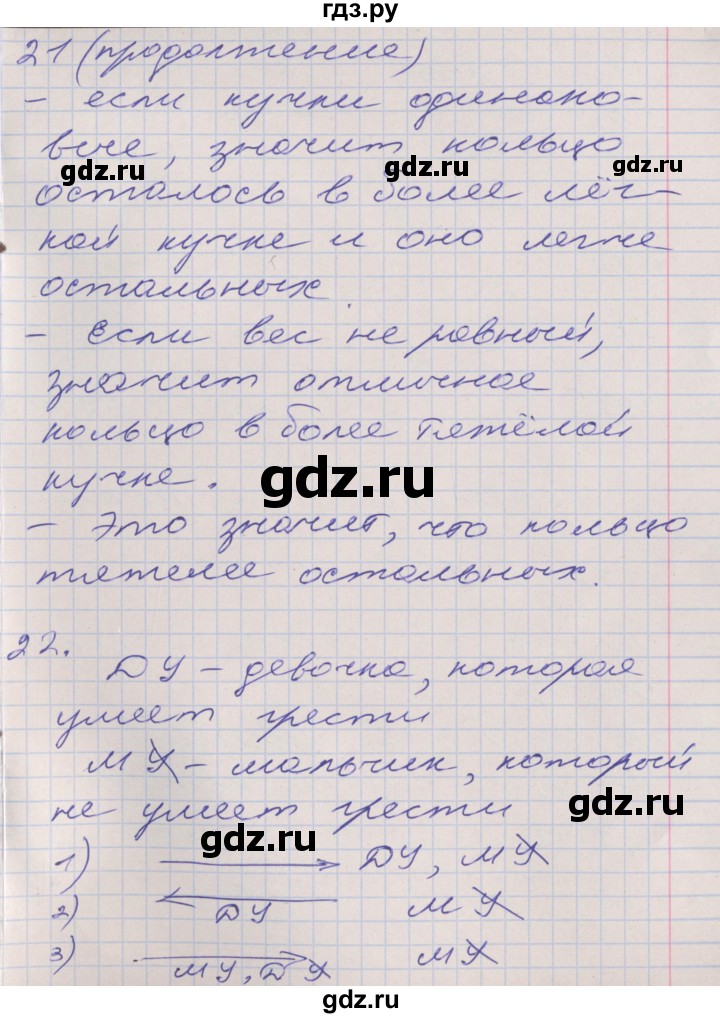 гдз.ру
21 (продолжение)
- если кучки одинако-
вые, значит кольцо
gdz.ru gdz.ru gdz.ru
осталось в более лёг-
кой кучке и оно легче
остальных.
- Если вес не равный,
значит отличное
кольцо в более тяжёлой
кучке.
gdz.ru
- Это значит, что кольцо
тяжелее остальных.
gdz.ru
22.
ДУ - девочка, которая
умеет грести
МУ - мальчик, который
не умеет грести
gdz.ru
gdz.ru
1) ДУ, МУ
2) ДУ МУ
3) МУ, ДУ МУ
gdz.ru